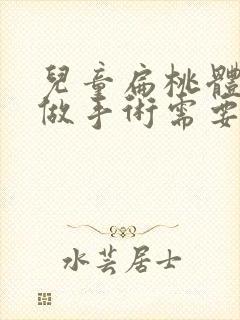 兒童扁桃體
做手術需要
水芸居士